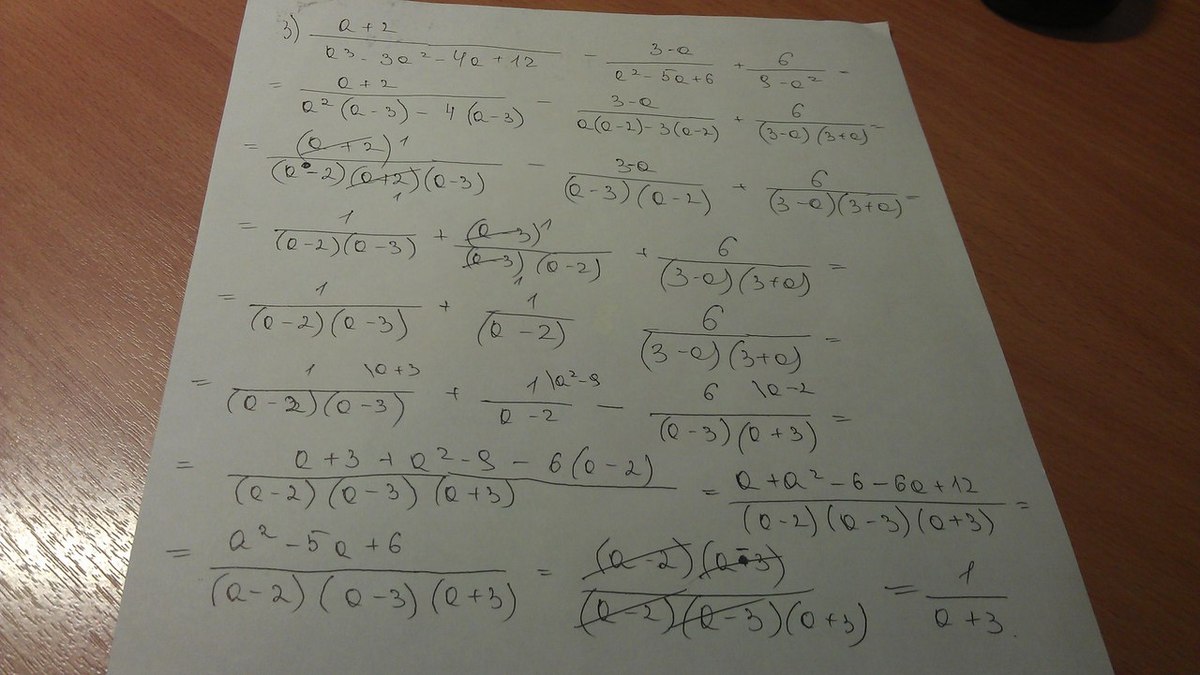 3) (a+2)/(a³-3a²-4a+12) - (3-a)/(a²-5a+6) + 6/(9-a²) =
= (a+2)/(a²(a-3)-4(a-3)) - (3-a)/(a(a-2)-3(a-2)) + 6/((3-a)(3+a)) =
= (a+2) 1/((a-2)(a+2)(a-3)) 1 - (3-a)/((a-3)(a-2)) + 6/((3-a)(3+a)) =
= 1/((a-2)(a-3)) + (a-3) 1/((a-3)(a-2)) 1 + 6/((3-a)(3+a)) =
= 1/((a-2)(a-3)) + 1/(a-2) 6/((3-a)(3+a)) =
= 1 \a+3/((a-2)(a-3)) + 1 \a²-9/(a-2) - 6 \a-2/((a-3)(a+3)) =
= (a+3+a²-9-6(a-2))/((a-2)(a-3)(a+3)) = (a+a²-6-6a+12)/((a-2)(a-3)(a+3)) =
= (a²-5a+6)/((a-2)(a-3)(a+3)) = ((a-2)(a-3))/((a-2)(a-3)(a+3)) = 1/(a+3).